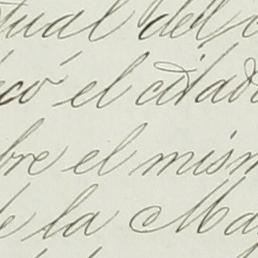 tual del
el citado
bre el mism
de la Ma